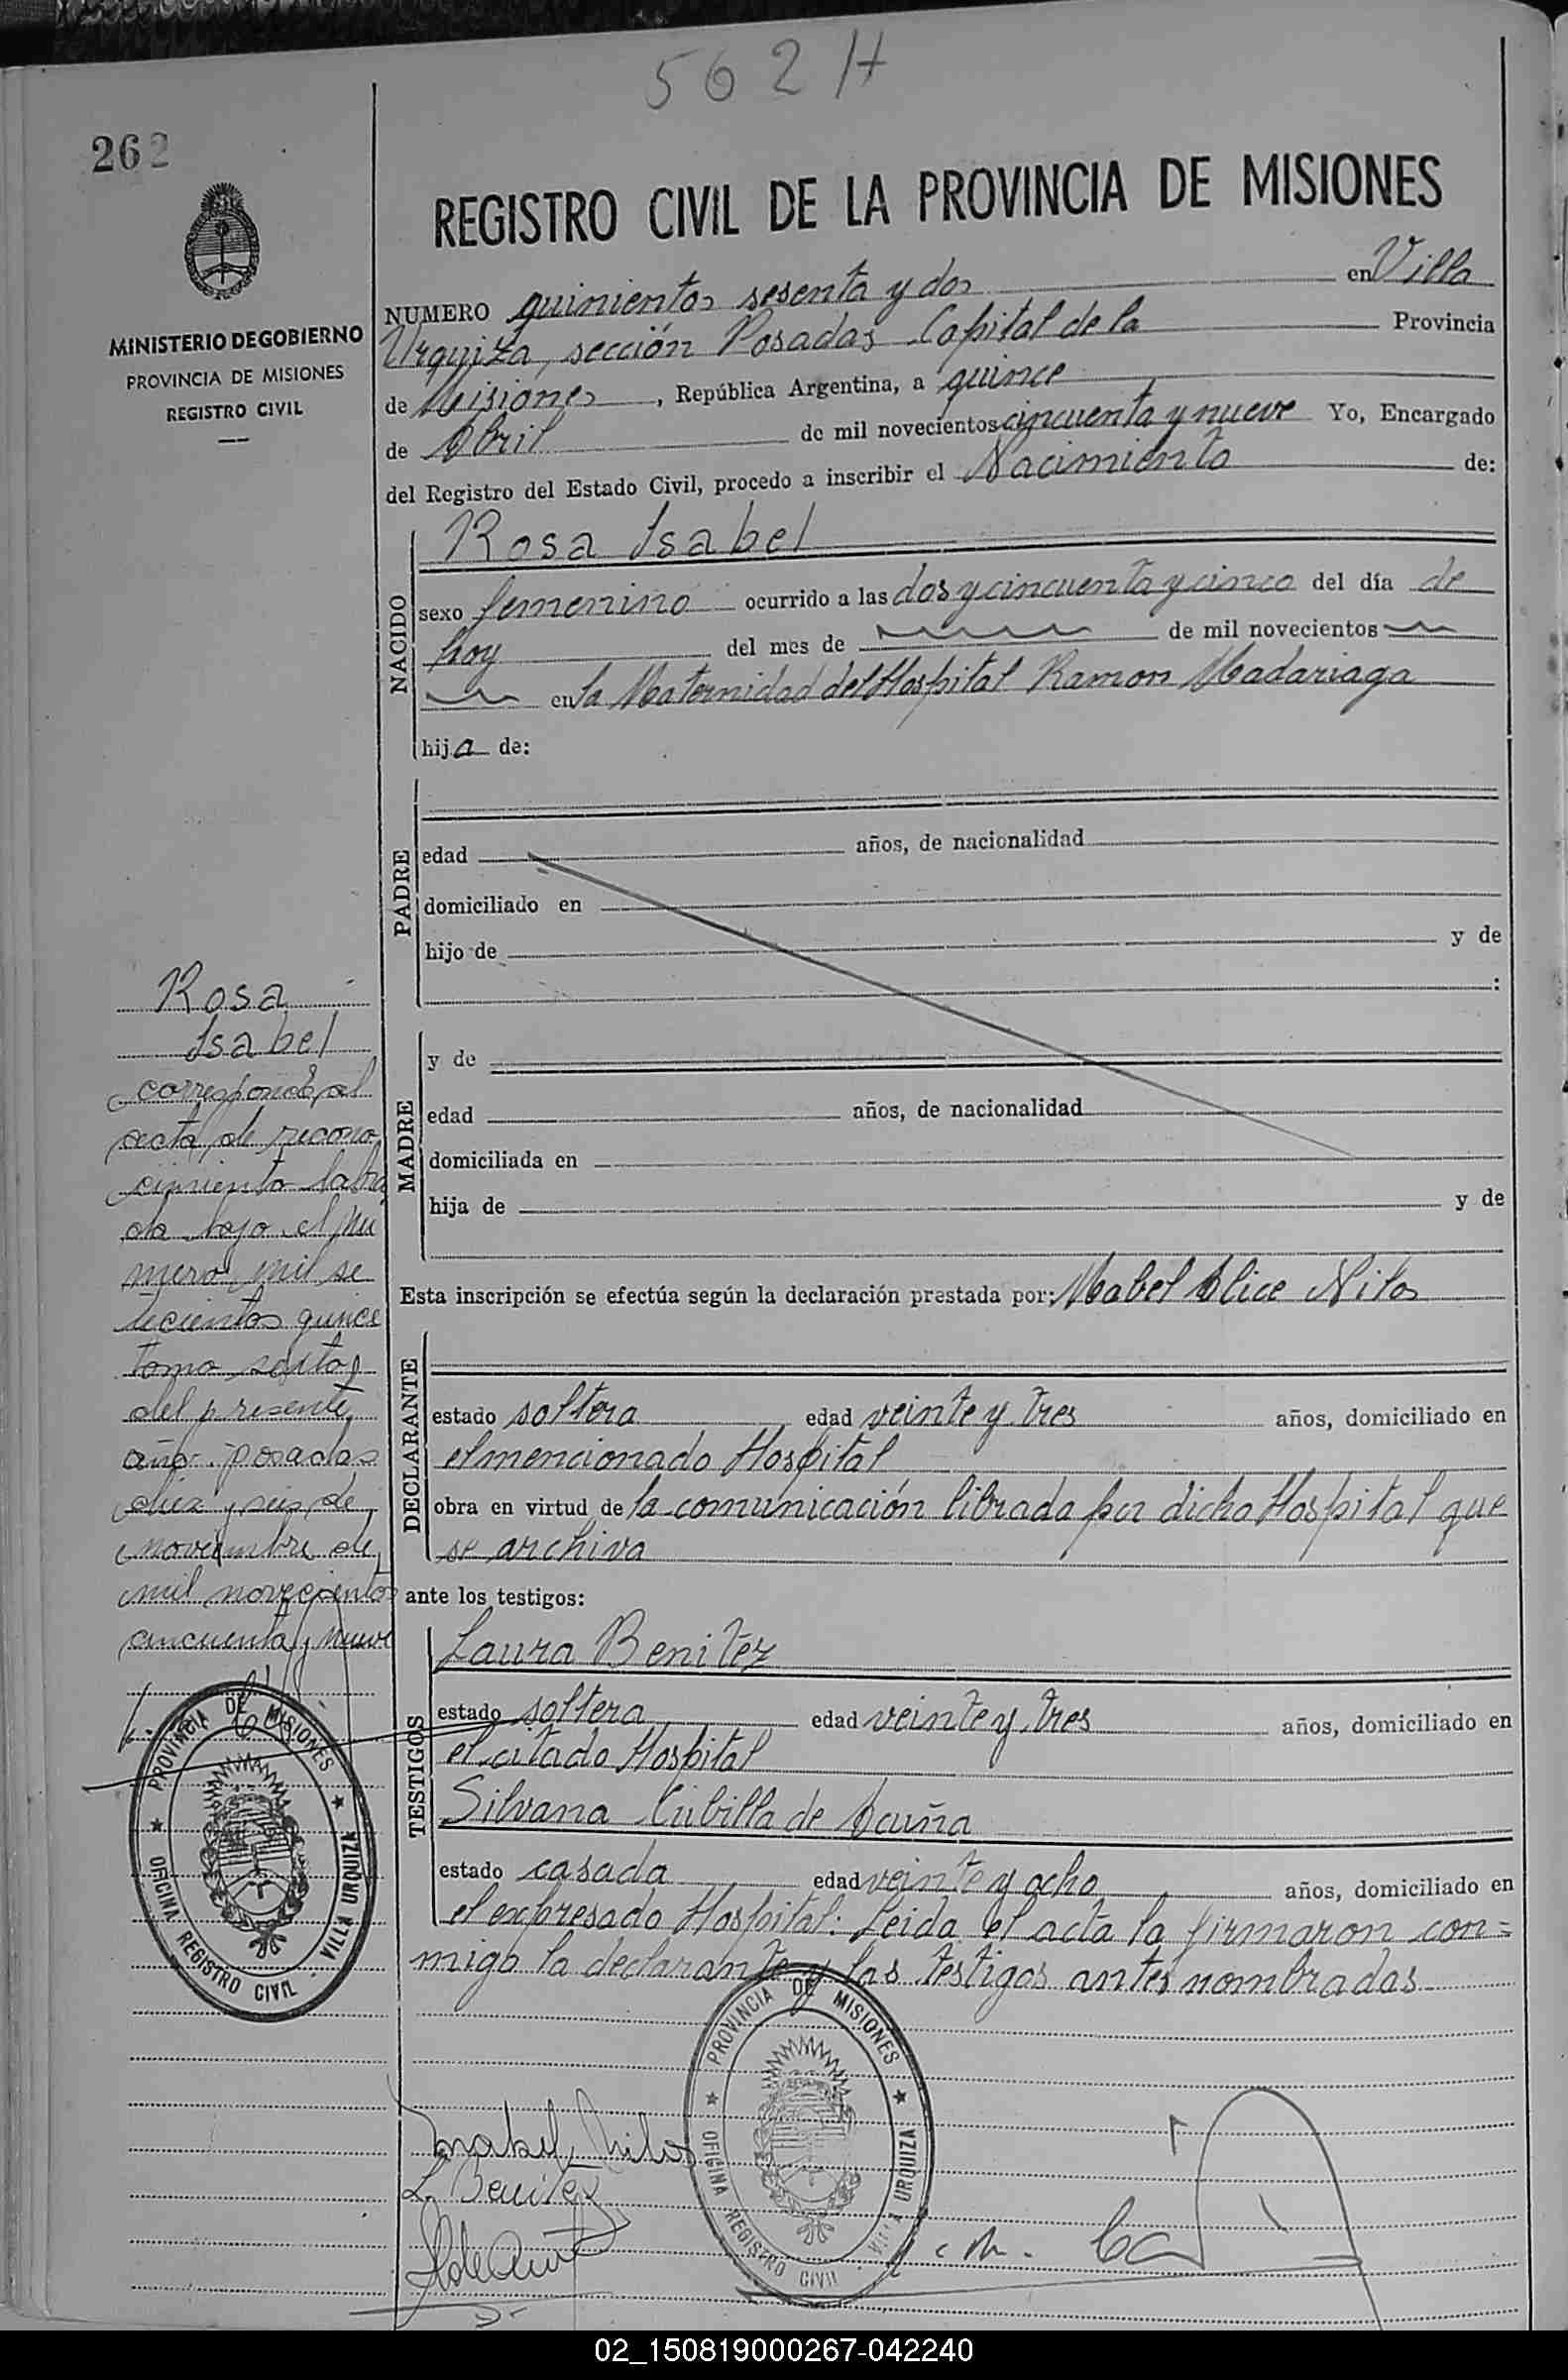 562 H
262
MINISTERIO DE GOBIERNO
PROVINCIA DE MISIONES
REGISTRO CIVIL
REGISTRO CIVIL DE LA PROVINCIA DE MISIONES
NUMERO quinientos sesenta y dos en Villa
Urquiza, sección Posadas Capital de la Provincia
de Misiones, República Argentina, a quince
de Abril de mil novecientos cincuenta y nueve Yo, Encargado
del Registro del Estado Civil, procedo a inscribir el Nacimiento de:
NACIDO
Rosa Isabel
sexo femenino ocurrido a las dos y cincuenta y cinco del día de
hoy del mes de de mil novecientos
en la Maternidad del Hospital Ramon Madariaga
hija de:
PADRE
edad años, de nacionalidad
domiciliado en
hijo de y de
:
MADRE
y de
edad años, de nacionalidad
domiciliada en
hija de y de
Esta inscripción se efectúa según la declaración prestada por: Mabel Alice Nilos
DECLARANTE
estado soltera edad veinte y tres años, domiciliado en
el mencionado Hospital
obra en virtud de la comunicación librada por dicho Hospital que
se archiva
ante los testigos:
TESTIGOS
Laura Benitez
estado soltera edad veinte y tres años, domiciliado en
el citado Hospital
Silvana Cubilla de Acuña
estado casada edad veinte y ocho años, domiciliado en
el expresado Hospital: Leida el acta la firmaron con=
migo la declarante y las testigos antes nombradas
Rosa
Isabel
corresponde al
acta de recono
cimiento labra
da bajo el nu
mero mil se
tecientos quince
tomo sexto
del presente
año. Posadas
diez y seis de
noviembre de
mil novecientos
cincuenta y nueve
PROVINCIA DE MISIONES
OFICINA REGISTRO CIVIL VILLA URQUIZA
PROVINCIA DE MISIONES
OFICINA REGISTRO CIVIL VILLA URQUIZA
Mabel Nilos
L. Benitez
02_150819000267-042240